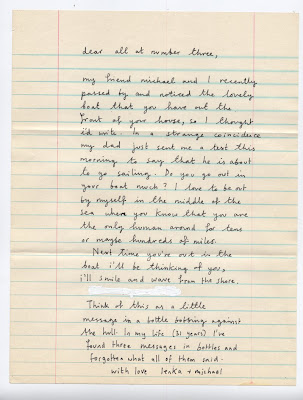 dear all at number three,
my friend michael and I recently
passed by and noticed the lovely
boat that you have out the
front of your house, so I thought
i'd write. In a strange coincidence
my dad just sent me a text this
morning to say that he is about
to go sailing. Do you go out in
your boat much? I love to be out
by myself in the middle of the
sea where you know that you are
the only human around for tens
or maybe hundreds of miles.
Next time you're out in the
boat i'll be thinking of you,
i'll smile and wave from the shore.
Think of this as a little
message in a bottle bobbing against
the hull. In my life (31 years) I've
found three messages in bottles and
forgotten what all of them said.
with love lenka + michael